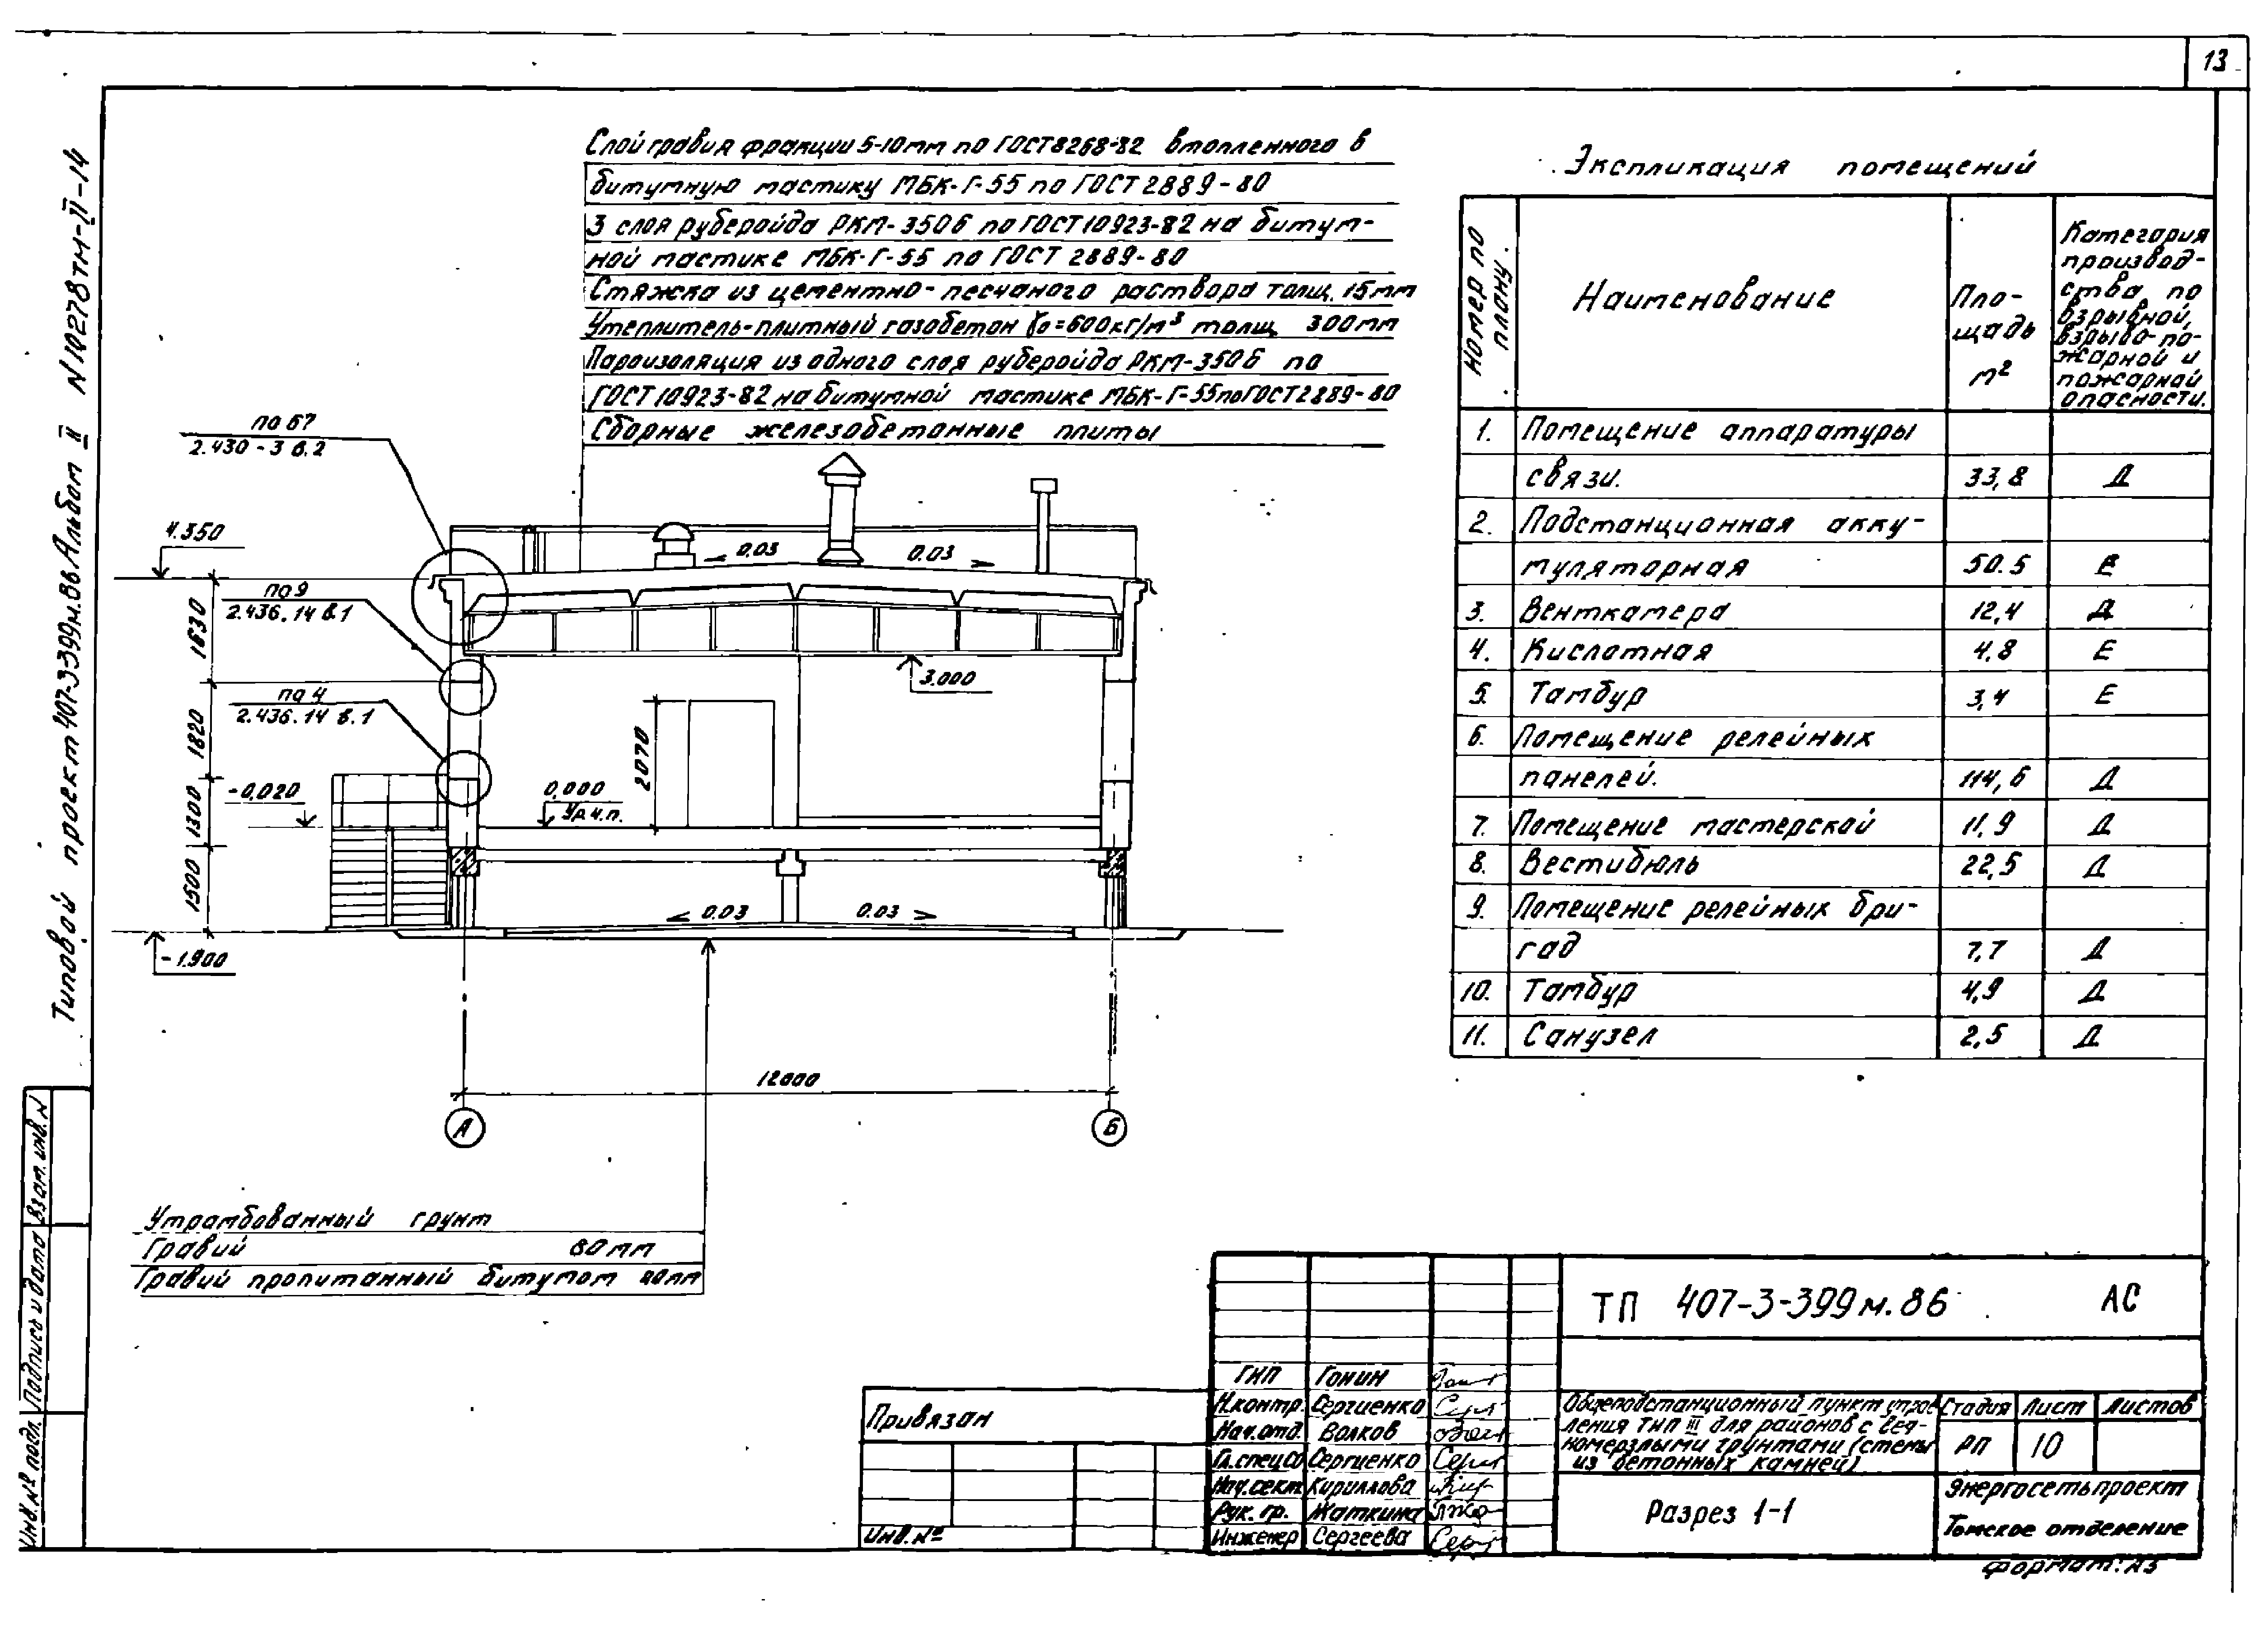 13
Типовой проект 407-3-399м.86 Альбом II N 10278тм-II-14
Слой гравия фракции 5-10мм по ГОСТ 8268-82 втопленного в
битумную мастику МБК-Г-55 по ГОСТ 2889-80
3 слоя рубероида РКМ-350б по ГОСТ 10923-82 на битум-
ной мастике МБК-Г-55 по ГОСТ 2889-80
Стяжка из цементно-песчаного раствора толщ. 15мм
Утеплитель-плитный газобетон γ₀=600кг/м³ толщ 300мм
Пароизоляция из одного слоя рубероида РКМ-350б по
ГОСТ 10923-82 на битумной мастике МБК-Г-55 по ГОСТ 2889-80
Сборные железобетонные плиты
по 67
2.430-3 в.2
4.350
по 9
2.436.14 в.1
по 4
2.436.14 в.1
1630
1820
1300
1500
-0,020
-1.900
0.03
0.03
3.000
2070
0,000
Ур.ч.п.
0.03
0.03
12000
А
Б
Утрамбованный грунт
Гравий 60мм
Гравий пропитанный битумом 40мм
Экспликация помещений
Номер по плану
Наименование
Площадь м²
Категория
производ-
ства по
взрывной,
взрыво-по-
жарной и
пожарной
опасности.
1. Помещение аппаратуры
связи. 33,8 Д
2. Подстанционная акку-
муляторная 50.5 Е
3. Венткамера 12,4 Д
4. Кислотная 4,8 Е
5. Тамбур 3,4 Е
6. Помещение релейных
панелей. 114,6 Д
7. Помещение мастерской 11,9 Д
8. Вестибюль 22,5 Д
9. Помещение релейных бри-
гад 7,7 Д
10. Тамбур 4,9 Д
11. Санузел 2,5 Д
Взам. инв. N
Подпись и дата
Инв. № подл.
Привязан
Инв. №
ГИП Гонин
Н.контр. Сергиенко
Нач.отд. Волков
Гл.спец СО Сергиенко
Нач.сект. Кириллова
Рук. гр. Жаткина
Инженер Сергеева
ТП 407-3-399м.86 АС
Общеподстанционный пункт управ-
ления тип III для районов с веч-
номерзлыми грунтами (стены
из бетонных камней)
Стадия Лист Листов
РП 10
Разрез 1-1
Энергосетьпроект
Томское отделение
Формат: А3